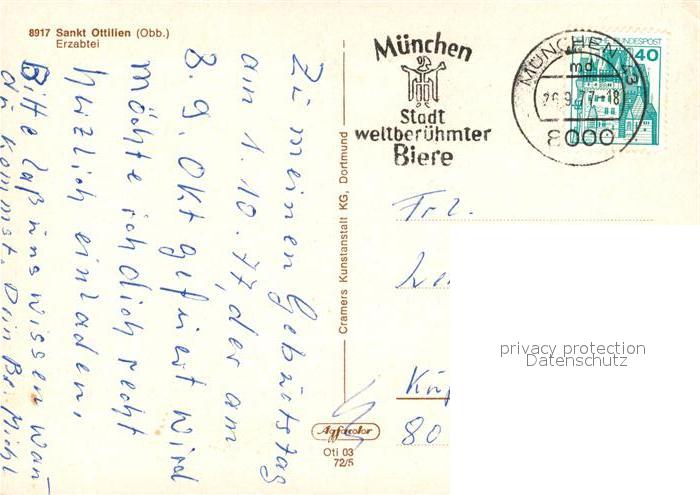 8917 Sankt Ottilien (Obb.)
Erzabtei
Zu meinen Geburtstag
am 1.10.77, der am
8. 9. Okt gefeiert wird
möchte ich dich recht
herzlich einladen,
Bitte laß uns wissen wan
du kommst. Dein Br.
Cramers Kunstanstalt KG, Dortmund
Agfacolor
Oti 03
72/5
München
Stadt
weltberühmter
Biere
MÜNCHEN 43
md
26.9.77-18
8000
DEUTSCHE BUNDESPOST
40
Frl.
80
privacy protection
Datenschutz